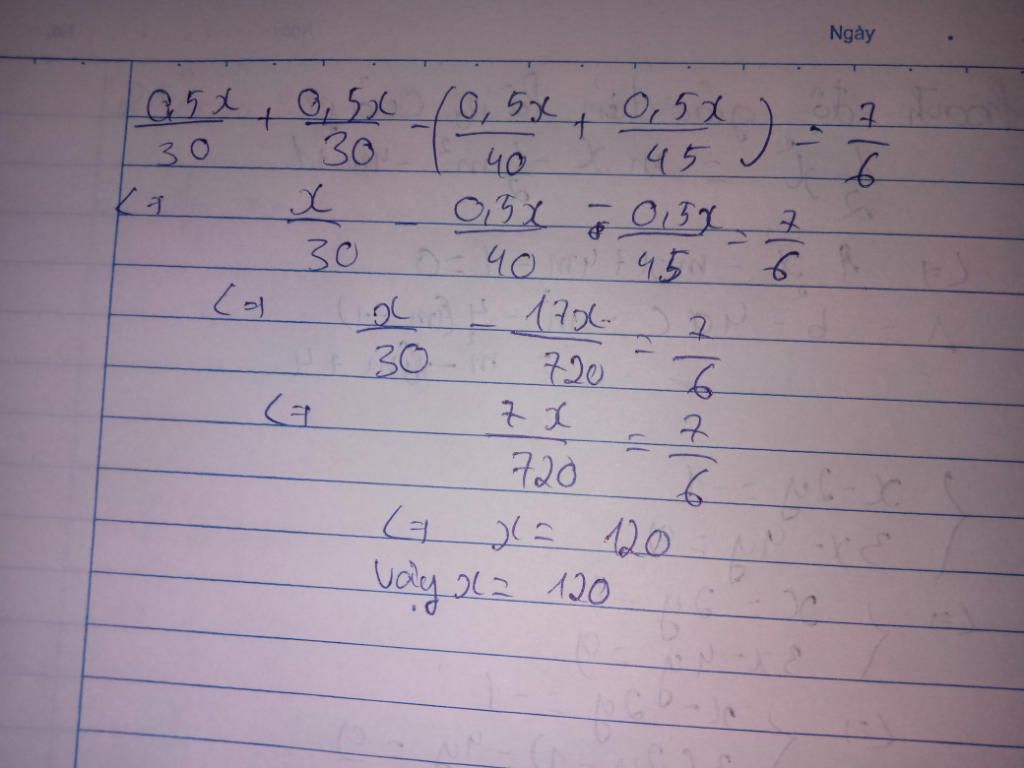 Ngày
0,5x/30 + 0,5x/30 - (0,5x/40 + 0,5x/45) = 7/6
<=> x/30 - 0,5x/40 - 0,5x/45 = 7/6
<=> x/30 - 17x/720 = 7/6
<=> 7x/720 = 7/6
<=> x = 120
Vậy x = 120